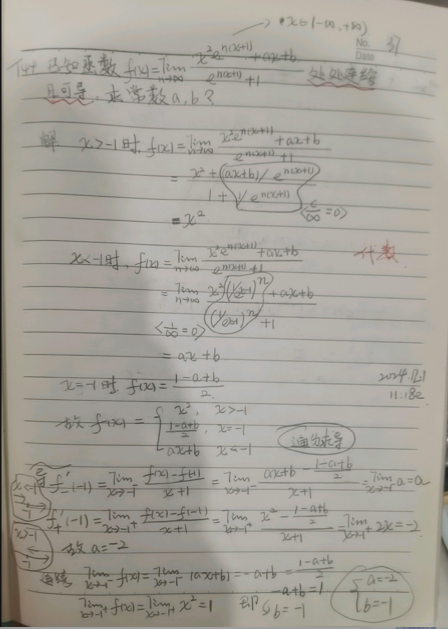 x∈(-∞,+∞)
No. 31
Date
已知函数 f(x)=lim n→∞ (x²e^{n(x+1)}+ax+b)/(e^{n(x+1)}+1) 处处连续
且可导，求常数a,b？
解 x>-1时, f(x)=lim n→∞ (x²e^{n(x+1)}+ax+b)/(e^{n(x+1)}+1)
= (x²+(ax+b)/e^{n(x+1)})/(1+1/e^{n(x+1)})
<c/∞=0>
= x²
x<-1时, f(x)=lim n→∞ (x²e^{n(x+1)}+ax+b)/(e^{n(x+1)}+1)
代数
<1/∞=0>
= ax+b
x=-1时 f(x)=(1-a+b)/2
2024.12.1
故 f(x)= { x², x>-1
(1-a+b)/2, x=-1
ax+b x<-1
x<-1 f'₋(-1)=lim x→-1⁻ (f(x)-f(-1))/(x+1)=lim x→-1⁻ (ax+b-(1-a+b)/2)/(x+1)=lim x→-1⁻ a=a
x>-1 f'₊(-1)=lim x→-1⁺ (f(x)-f(-1))/(x+1)=lim x→-1⁺ (x²-(1-a+b)/2)/(x+1)=lim x→-1⁺ 2x=-2
故 a=-2
连续 lim x→-1⁻ f(x)=lim x→-1⁻ (ax+b)=-a+b=(1-a+b)/2
lim x→-1⁺ f(x)=lim x→-1⁺ x²=1 即 { -a+b=1
b=-1
{ a=-2
b=-1